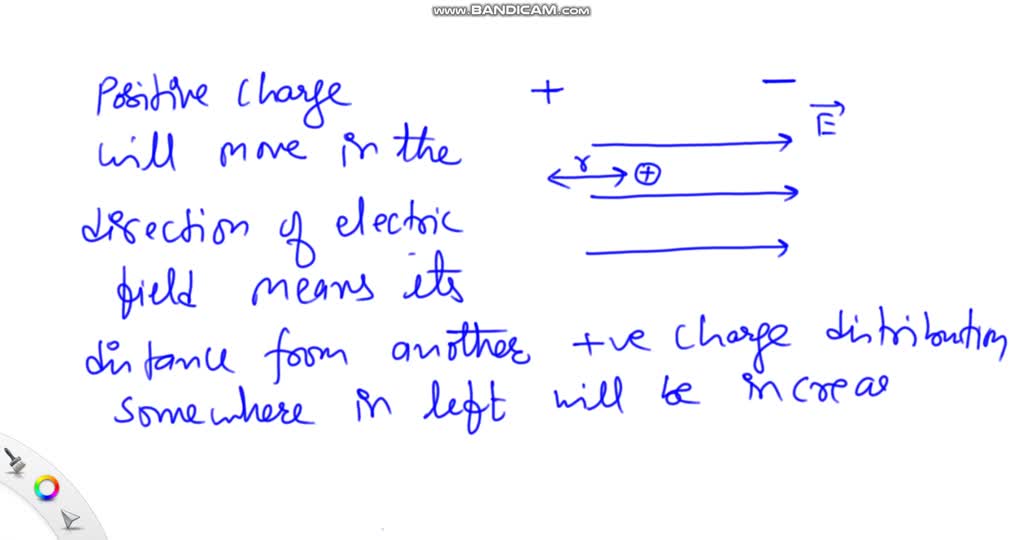 www.BANDICAM.com
Positive charge + −
E
will move in the
r +
direction of electric
field means its
distance from another +ve charge distribution
somewhere in left will be increas